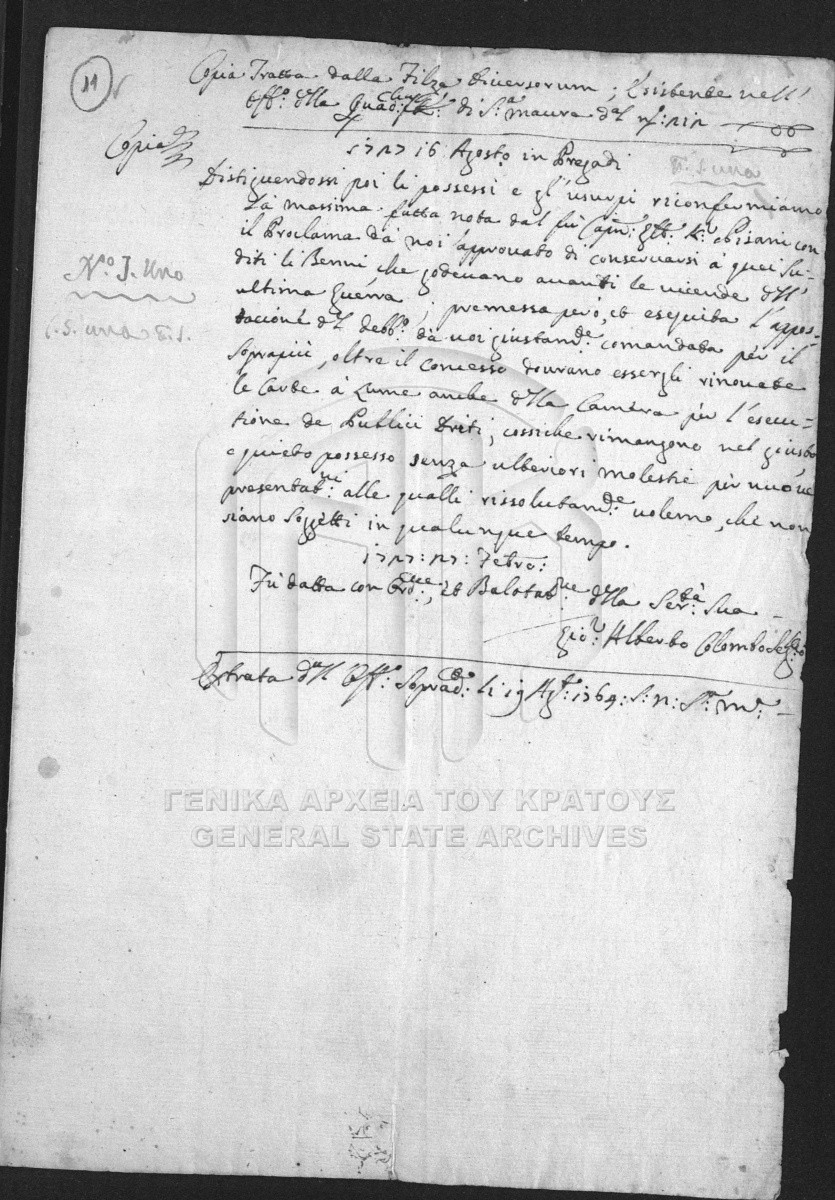 11
Copia Tratta dalla Filza Diversorum; Esistente nell'
Off.o della di S.a Maura
Copia
1717 16 Agosto in Pregadi
Distiguendossi poi li possessi e gl'usurpi riconfermiamo
la massima fatta nota dal fù Cap.n: K.r Pisani con
il Proclama dà noi approvato di conservarsi à quei Su-
diti li Benni, che godevano avanti le vicende dell'
ultima Guerra; premessa però, et esequita l'appos-
tacione del debb.o dà voi giustam.de comandata per il
soprapiù, oltre il concesso dovrano essergli rinovate
le Carte à Lume anche della Camera per l'esecu-
tione de Publici Driti, cossiche rimangono nel giusto
e quieto possesso senza ulteriori molestie per nuove
presentat.ni alle qualli rissolutam.de volemo, che non
siano Soggetti in qualunque tempo.
Fù datta con et Balotat della Ser.tà Sua
Gio: Alberto Colombo Seg.rio
Estrata dall Off.o Soprad.o li 19 Ag.t: 1764: S: n: S.ta M.a:
N.o 1. Uno
ΓΕΝΙΚΑ ΑΡΧΕΙΑ ΤΟΥ ΚΡΑΤΟΥΣ
GENERAL STATE ARCHIVES